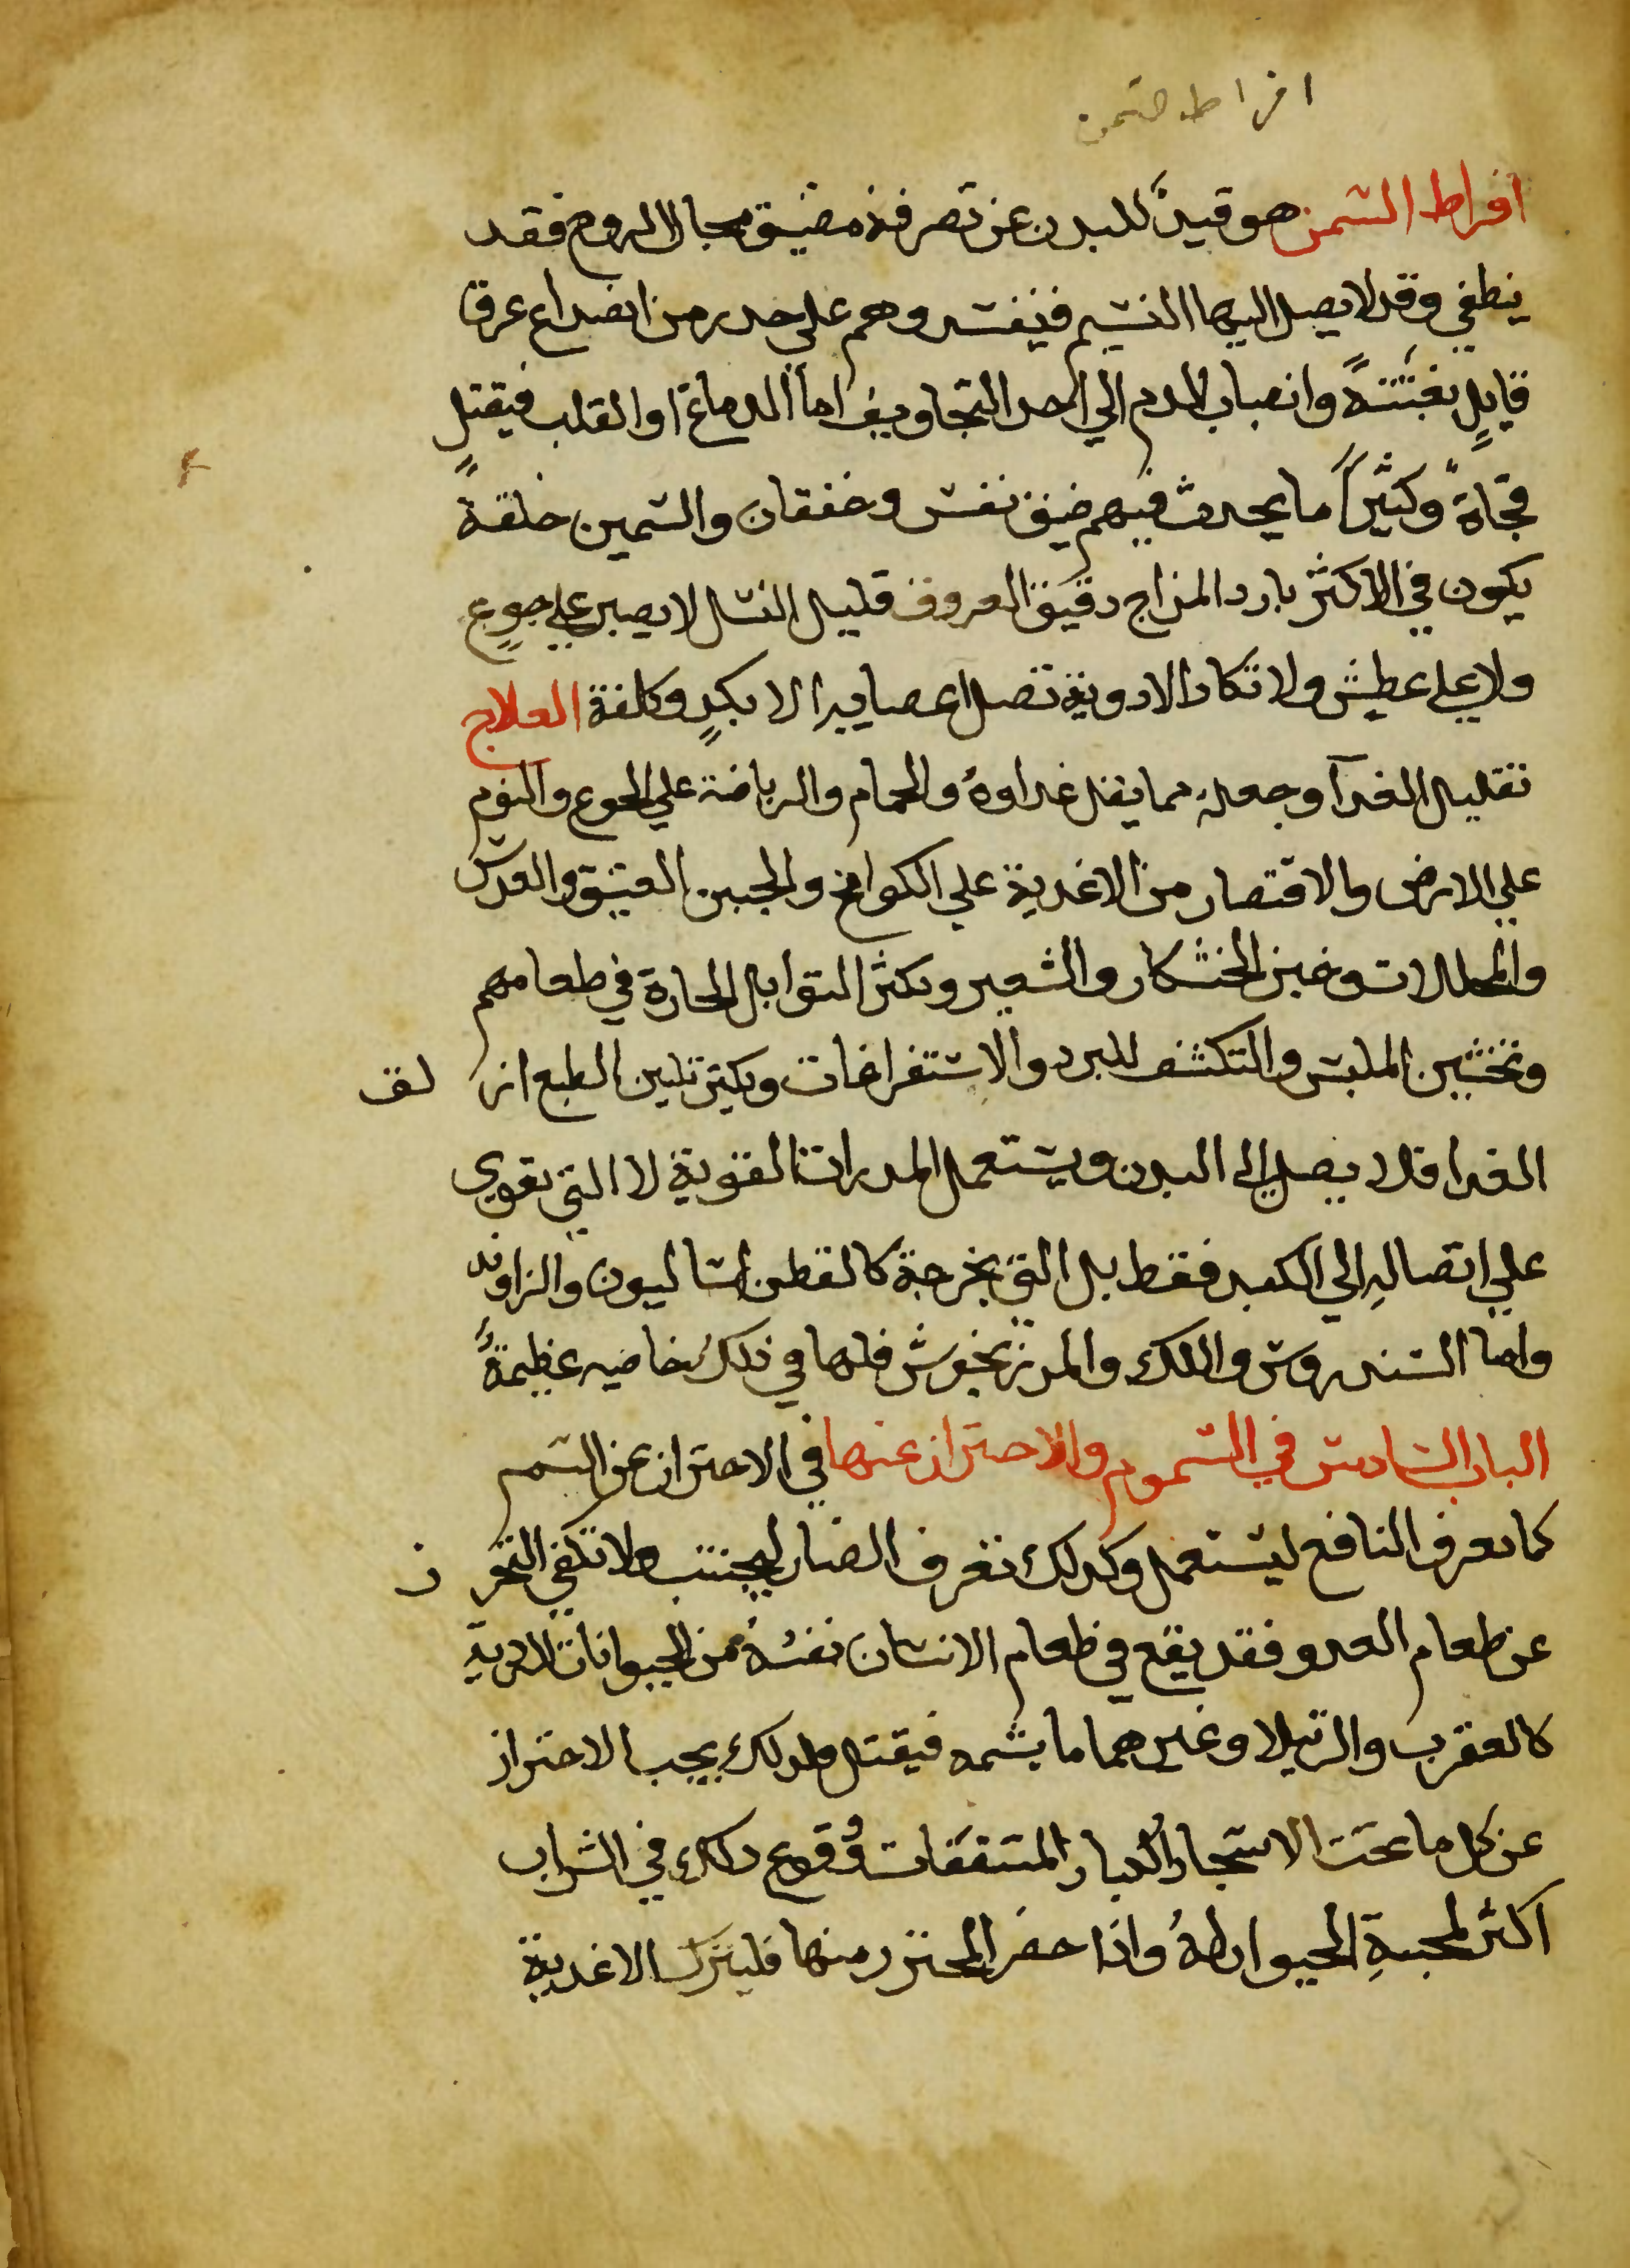 افراط السمن
افراط السمن هو قيدٌ للبدن عن تصرفه مضيق مجال الروح فقد
ينطفي وقد لا يصل اليها النسيم فيفسد وهم علي حدر من انصداع عرق
قايلٍ بغتتةً وانصباب الدم الي احد التجاويف اما الدماغ او القلب فيقتل
فجاةً وكثيراً ما يحدث فيهم ضيق نفس وخفقان والسمين خلقة
يكون في الاكثر بارد المزاج دقيق العروق قليل النسل لا يصبر علي جوعٍ
ولا علي عطش ولا تكاد الادوية تصل اعصايه الا بكدٍ وكلفة العلاج
تقليل الغدآ وجعله مما يقل غداوهُ والحمام والرياضة علي الجوع والنوم
علي الارض والاقتصار من الاغدية علي الكوامخ والجبن العتيق والعدس
والمخللات وخبز الخشكار والشعير ويكثر التوابل الحارة في طعامهم
وتخشين الملبس والتكشف للبرد والاستفراغات ويكثر تليين الطبع لنز لق
الغدا فلا يصل الي البدن ويستعمل المدرات القوية لا التي تقوي
علي اتصالهِ الي الكبد فقط بل التي تخرجة كالقطن اساليون والزاوند
واما السندروس واللك والمرزنجوش فلها في ذلك خاصيه عظيمةً
الباب السادس في السموم والاحتراز عنها في الاحتراز عن السم
كما نعرف النافع ليستعمل وكدلك نعرف الضار ليجتنب ولا تكفي التحر ز
عن طعام العدو فقد يقع في طعام الانسان نفسهُ من الحيوانات الرديه
كالعقرب والرتيلا وغيرهما ما يسمه فيقتل ولدلك يجب الاحتراز
عن كل ما تحت الاشجار الكبار المسقفات وُقوع دلك في الشراب
اكثر لمحبةِ الحيوان لهُ واذا حضر المحترز منها فليترك الاغدية